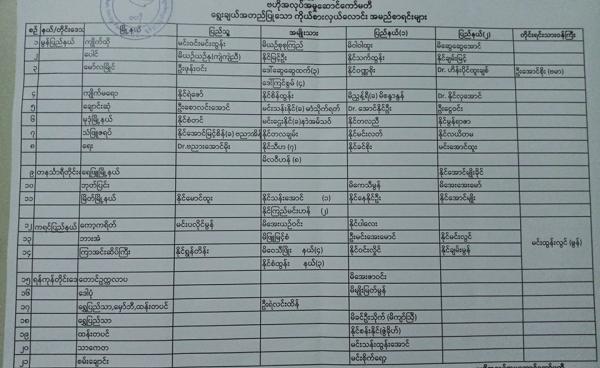 ဗဟိုအလုပ်အမှုဆောင်ကော်မတီ
ရွေးချယ်အတည်ပြုသော ကိုယ်စားလှယ်လောင်း အမည်စာရင်းများ
စဉ် နယ်/တိုင်းဒေသ မြို့နယ် ပြည်သူ့ အမျိုးသား ပြည်နယ်(၁) ပြည်နယ်(၂) တိုင်းရင်းသားဝန်ကြီး
၁ မွန်ပြည်နယ် ကျိုက်ထို မင်းဝင်းမင်းထွန်း မိယဉ်စုစုကြည် မိဝါဝါထူး မိဆွေဆွေအောင်
၂ ပေါင် မိယဉ်ယဉ်နု(ကျဲကျညီ) နိုင်မြင့်ဦး နိုင်သက်ထွန်း နိုင်ချမ်းမြင့်
၃ မော်လမြိုင် ဦးဖုန်းဝင်း ဒေါ်ဆွေဆွေထက်(၃) နိုင်ဝဏ္ဏစိုး Dr. ဟိန်းပိုင်ထူးချစ် ဦးအောင်စိုး (ဗမာ)
ဒေါ်ကြင်စွမ် (၄)
၄ ကျိုက်မရော နိုင်ရဲခေါ် နိုင်စိန်ထွန်း Dr. နိုင်လှအောင်
၅ ချောင်းဆုံ ဦးစောလင်းအောင် Dr. အောင်နိုင်ဦး ဦးငွေဝင်း
၆ မုဒုံမြို့နယ် နိုင်စံတင် နိုင်တလညီ နိုင်မွန်ရာဇာ
၇ သံဖြူဇရပ် နိုင်တလချမ်း နိုင်မင်းလတ် နိုင်လယိတမ
၈ ရေး Dr.ဗညားအောင်မိုး နိုင်သီဟ (၇) နိုင်ခင်စိုး မင်းအောင်ထူး
မိလဝီဟန် (၈)
၉ တနင်္သာရီတိုင်း ရေဖြူမြို့နယ် နိုင်အောင်မျိုးခိုင်
၁၀ ဘုတ်ပြင်း မိကေသီမွန် မိအေးအေးမော်
၁၁ မြိတ်မြို့နယ် နိုင်မောင်ထူး နိုင်သန်းအောင် (၁) နိုင်နေနိုင်ဦး နိုင်အောင်မျိုး
နိုင်ကြည်မင်းဟန် (၂)
၁၂ ကရင်ပြည်နယ် ကော့ကရိတ် မင်းပလိုင်မွန် မိအေးယဉ်ဝင်း နိုင်ပါလေး
၁၃ ဘားအံ မိဖြူမြင့်စံ ဦးမင်းအေးမောင် နိုင်မင်းလွင် မင်းထွန်းလွင် (မွန်)
၁၄ ကြာအင်းဆိပ်ကြီး နိုင်ရွန်တိန်း မိဝေသီဖြိုး နယ်(၄) နိုင်ဝင်းလှိုင် နိုင်ချမ်းမွန်
နိုင်စံထွန်း နယ်(၃)
၁၅ ရန်ကုန်တိုင်းဒေသ တောင်ဥက္ကလာပ မိအေးဇာဝင်း
၁၆ ဒေါပုံ မိမျိုးမြတ်မွန်
၁၇ ရွှေပြည်သာ,မှော်ဘီ,ထန်းတပင် ဦးရဲလင်းထိန်
၁၈ ရွှေပြည်သာ မိခင်ဦးသိုက်
၁၉ ထန်းတပင် နိုင်စန်းနိုင်
၂၀ သာကေတ မင်းသန်းထွန်းအောင်
၂၁ စမ်းချောင်း မင်းစိုက်ရော့